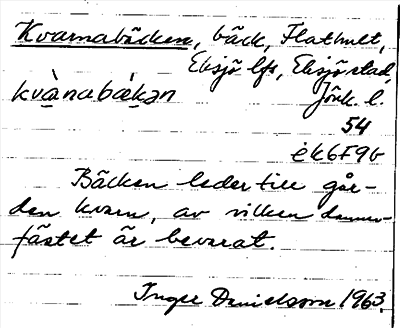 Kvarnabäcken, bäck, Flathult,
Eksjö lfs, Eksjö stad,
kvànabǽkən Jönk. l.
54
ek6F9b
Bäcken leder till går-
den kvarn, av vilken damm-
fästet är bevarat.
Inger Danielsson 1963.